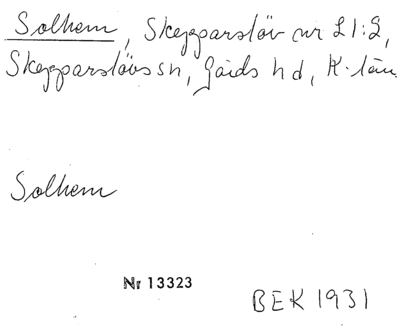 Solhem, Skepparslöv nr 21:2,
Skepparslövs sn, Gärds hd, K-län
Solhem
Nr 13323
BEK 1931